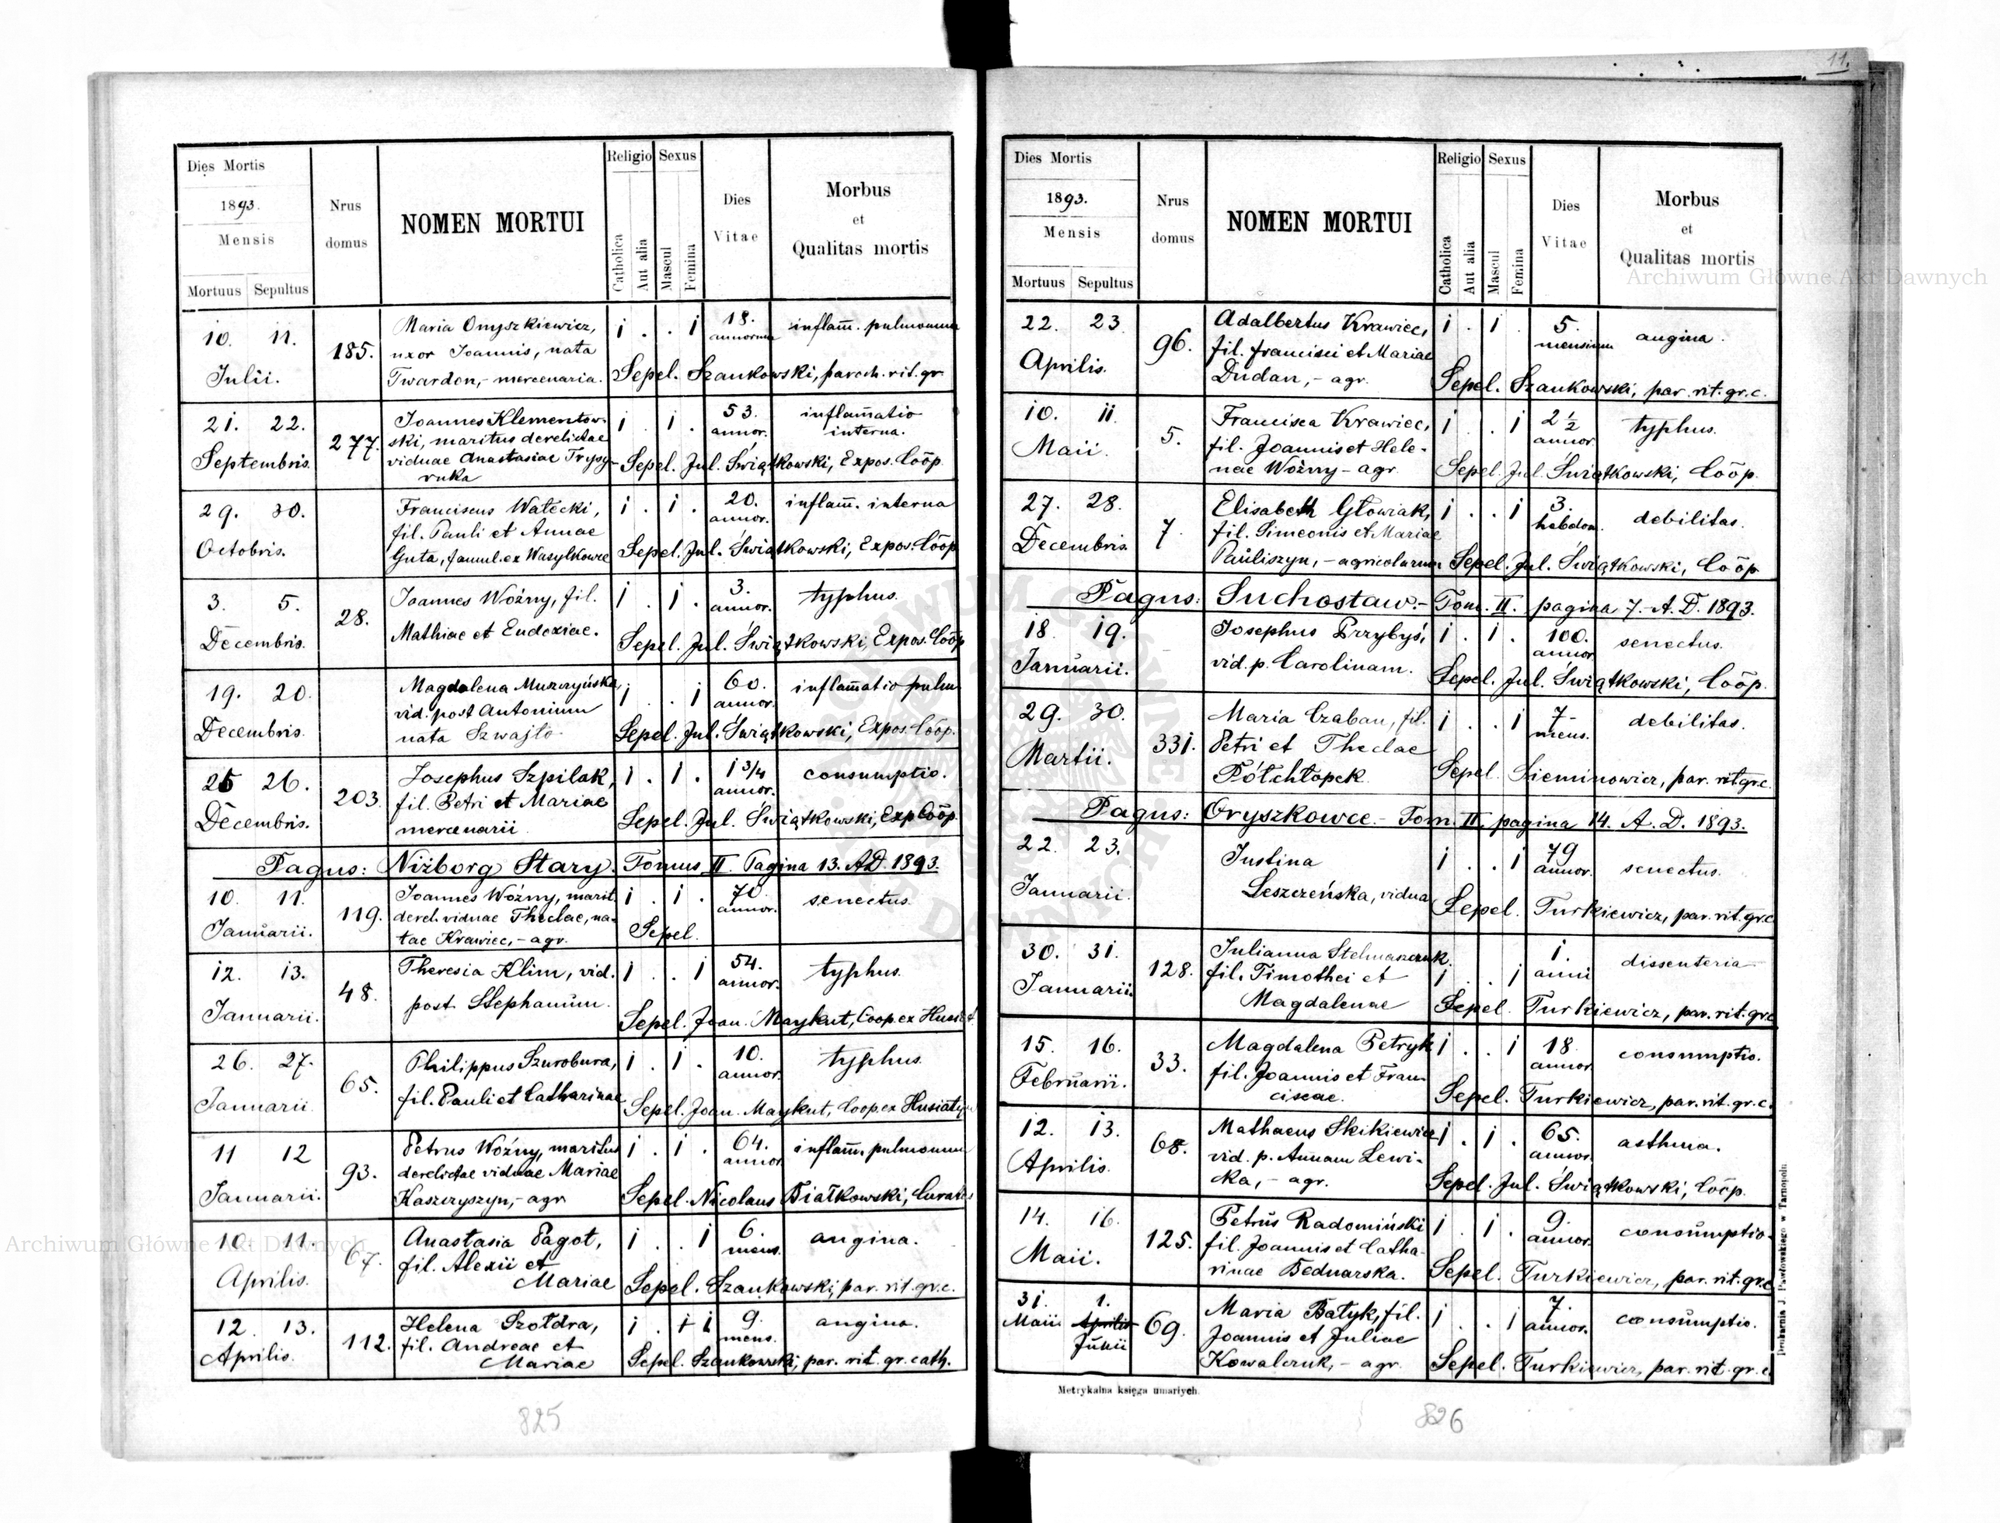 11.
Dies Mortis
1893.
Mensis
Mortuus Sepultus
Nrus domus
NOMEN MORTUI
Religio Sexus
Catholica
Aut alia
Mascul
Femina
Dies Vitae
Morbus
et
Qualitas mortis
10. 11. Julii. 185. Maria Onyszkiewicz, i . . i 18. annorum inflam̄. pulmonum
uxor Joannis, nata
Twardon,- mercenaria. Sepel. Szankowski, paroch. rit. gr.
21. 22. Septembris. 277. Joannes Klementow- i . i . 53. annor. inflam̄atio interna.
ski, maritus derelictae
viduae Anastasiae Trysy- Sepel. Jul. Świątkowski, Expos. Coōp.
ruka
29. 30. Octobris. Franciscus Watecki, i . i . 20. annor. inflam̄. interna
fil. Pauli et Annae
Guta, famul. ex Wasylkowce Sepel. Jul. Świątkowski, Expos. Coōp
3. 5. Decembris. 28. Joannes Woźny, fil. i . i . 3. annor. typhus.
Mathiae et Eudoxiae. Sepel. Jul. Świątkowski, Expos. Coōp
19. 20. Decembris. Magdalena Murzyńska, i . . i 60. annor. inflam̄atio pulm
vid. post Antonium
nata Szwajło Sepel. Jul. Świątkowski, Expos. Coōp.
25 26. Decembris. 203. Josephus Szpilak, i . i . 1 3/4 annor. consumptio.
fil. Petri et Mariae
mercenarii Sepel. Jul. Świątkowski, Exp. Coōp.
Pagus: Niżborg Stary. Tomus II. Pagina 13. A.D. 1893.
10. 11. Januarii. 119. Joannes Woźny, marit. i . i . 70. annor. senectus.
derel. viduae Theclae, na-
tae Krawiec,- agr. Sepel.
12. 13. Januarii. 48. Theresia Klim, vid. i . . i 54. annor. typhus.
post Stephanum. Sepel. Joan. Maykut, Coop ex Husiat
26. 27. Januarii. 65. Philippus Szurobura, i . i . 10. annor. typhus.
fil. Pauli et Catharinae Sepel. Joan. Maykut, Coop. ex Husiaty
11 12 Januarii. 93. Petrus Woźny, maritus i . i . 64. annor inflam̄. pulmonum
derelictae viduae Mariae
Kaszczyszyn,- agr Sepel. Nicolaus Białkowski, Curatus
10. 11. Aprilis. 67. Anastasia Pagot, i . . i 6. mens. angina.
fil. Alexii et
Mariae Sepel. Szankowski, par. rit. gr. c.
12. 13. Aprilis. 112. Helena Szołdra, i . i i 9. mens. angina.
fil. Andreae et
Mariae Sepel. Szankowski, par. rit. gr. cath.
825
Dies Mortis
1893.
Mensis
Mortuus Sepultus
Nrus domus
NOMEN MORTUI
Religio Sexus
Catholica
Aut alia
Mascul
Femina
Dies Vitae
Morbus
et
Qualitas mortis
22. 23. Aprilis. 96. Adalbertus Krawiec, i . i . 5. mensium angina.
fil. Francisci et Mariae
Dudan,- agr. Sepel. Szankowski, par. rit. gr. c.
10. 11. Maii. 5. Francisca Krawiec, i . . i 2 1/2 annor. typhus.
fil. Joannis et Hele-
nae Woźny - agr. Sepel. Jul. Świątkowski, Coōp.
27. 28. Decembris. 7. Elisabeth Głowiak, i . . i 3. hebdom. debilitas.
fil. Simeonis et Mariae
Pauliszyn,- agricolarum Sepel. Jul. Świątkowski, Coōp
Pagus: Suchostaw.- Tom. II. pagina 7. A.D. 1893.
18. 19. Januarii. Josephus Przybyś, i . i . 100. annor senectus.
vid. p. Carolinam. Sepel. Jul. Świątkowski, Coōp.
29. 30. Martii. 331. Maria Czaban, fil. i . . i 7- mens. debilitas.
Petri et Theclae
Półchłopek Sepel. Sieminowicz, par. rit. gr. c.
Pagus: Oryszkowce.- Tom. II. pagina 14. A.D. 1893.
22. 23. Januarii. Justina i . . i 79 annor. senectus.
Leszczeńska, vidua Sepel. Turkiewicz, par. rit. gr. c
30. 31. Januarii. 128. Julianna Stelmaszczuk. i . . i 1. anni dissenteria
fil. Timothei et
Magdalenae Sepel. Turkiewicz, par. rit. gr. c
15. 16. Februarii. 33. Magdalena Petryk i . . i 18 annor. consumptio.
fil. Joannis et Fran-
ciscae. Sepel. Turkiewicz, par. rit. gr. c.
12. 13. Aprilis. 68. Mathaeus Skikiewicz i . i . 65. annor. asthma.
vid. p. Annam Lewi-
cka,- agr. Sepel. Jul. Świątkowski, Coōp.
14. 16. Maii. 125. Petrus Radomiński i . i . 9. annor. consumptio.
fil. Joannis et Catha-
rinae Bednarska. Sepel. Turkiewicz, par. rit. gr. c
31. Maii 1. Aprilis Junii 69. Maria Batyk, fil. i . . i 7. annor. consumptio.
Joannis et Juliae
Kowalczuk,- agr. Sepel. Turkiewicz, par. rit. gr. c.
Metrykalna księga umarłych.
Drukarnia J. Pawłowskiego w Tarnopolu
826
Archiwum Główne Akt Dawnych
Archiwum Główne Akt Dawnych
ARCHIWUM GŁÓWNE AKT DAWNYCH